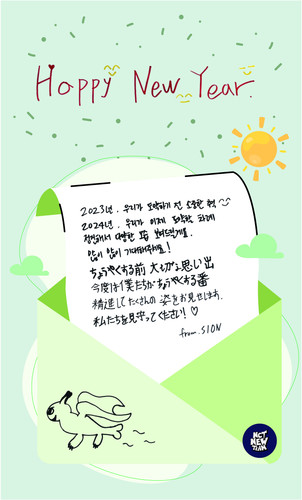 Happy New Year.
2023년, 우리가 도약하기 전 소중한 한
2024년, 우리가 이제 도약할 차례
정진해서 다양한 모습 보여드릴게요.
많이 많이 기대해주세요!
ちょうやくする前 大切な思い出
今度は僕たちがちょうやくする番
精進してたくさんの姿をお見せします。
私たちを見守ってください! ♡
from. SION
NCT
NEW
TEAM